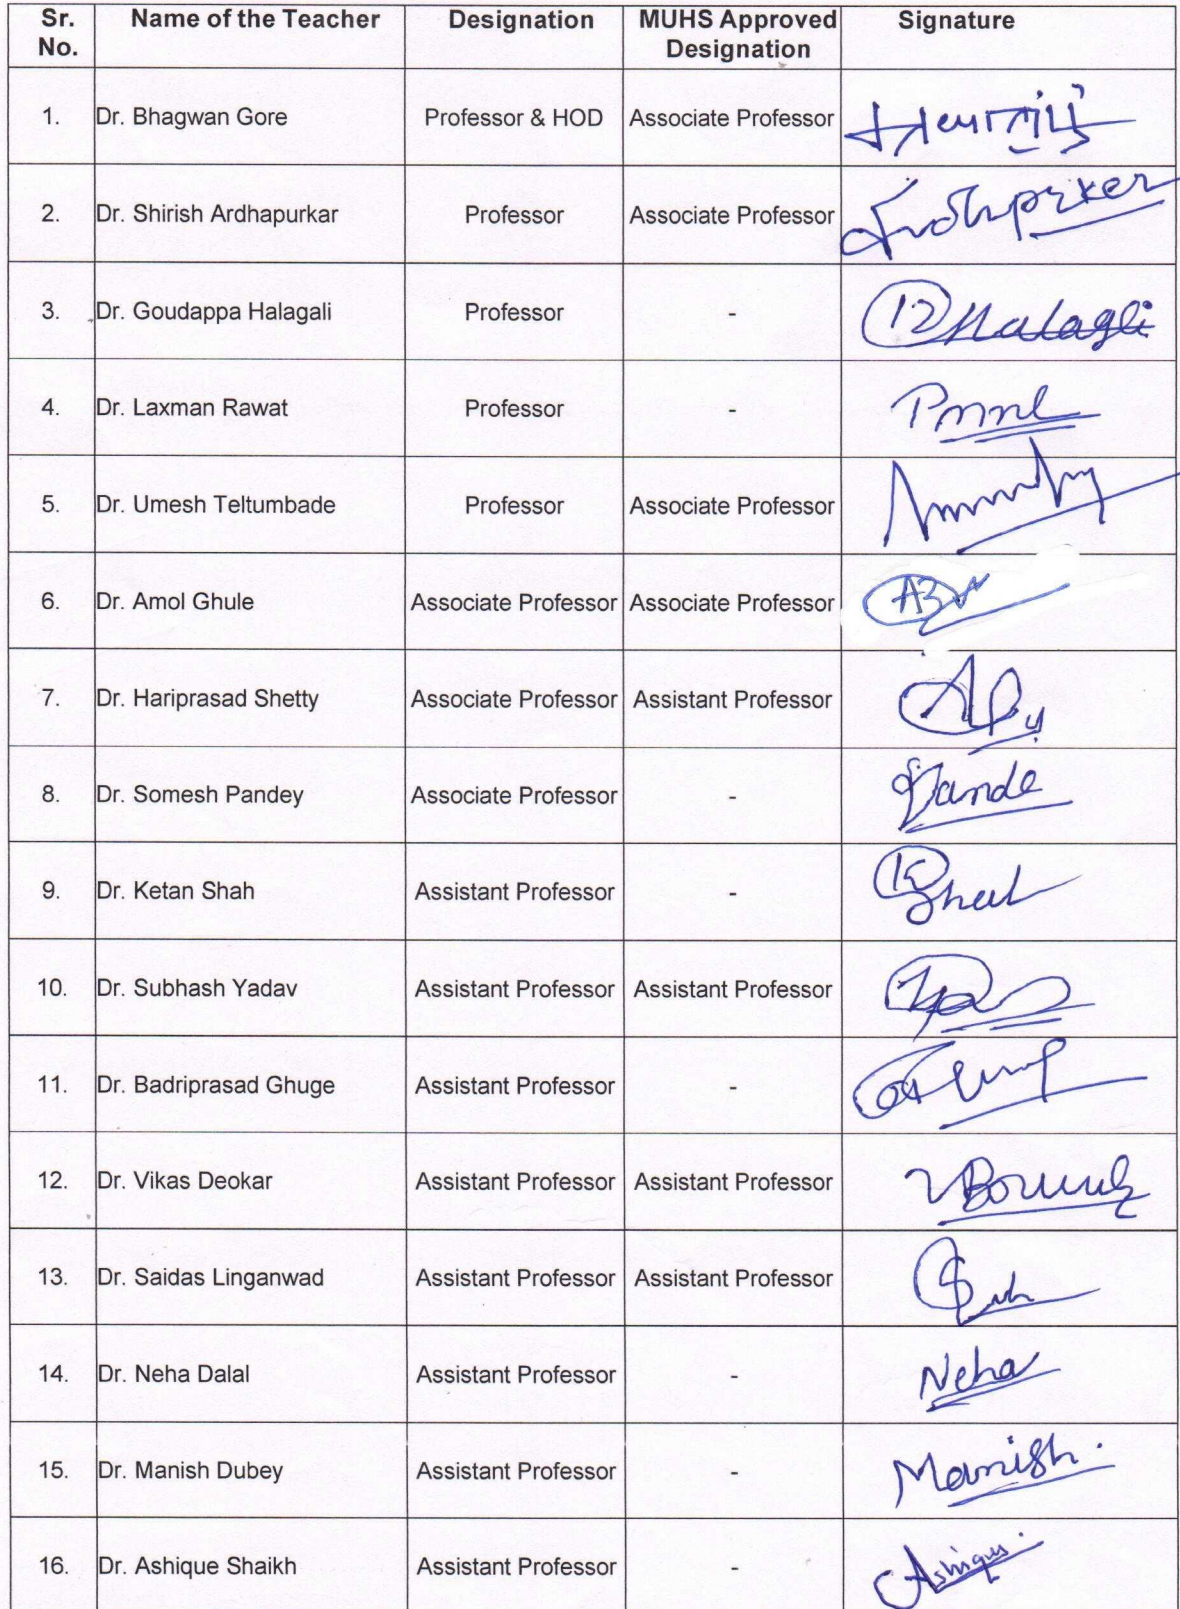 Sr. No. Name of the Teacher Designation MUHS Approved Designation Signature
1. Dr. Bhagwan Gore Professor & HOD Associate Professor
2. Dr. Shirish Ardhapurkar Professor Associate Professor
3. Dr. Goudappa Halagali Professor - Halagli
4. Dr. Laxman Rawat Professor -
5. Dr. Umesh Teltumbade Professor Associate Professor
6. Dr. Amol Ghule Associate Professor Associate Professor
7. Dr. Hariprasad Shetty Associate Professor Assistant Professor
8. Dr. Somesh Pandey Associate Professor -
9. Dr. Ketan Shah Assistant Professor -
10. Dr. Subhash Yadav Assistant Professor Assistant Professor
11. Dr. Badriprasad Ghuge Assistant Professor -
12. Dr. Vikas Deokar Assistant Professor Assistant Professor
13. Dr. Saidas Linganwad Assistant Professor Assistant Professor
14. Dr. Neha Dalal Assistant Professor - Neha
15. Dr. Manish Dubey Assistant Professor - Manish.
16. Dr. Ashique Shaikh Assistant Professor - Ashique